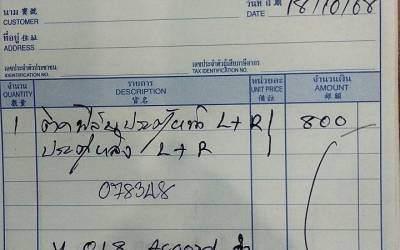 นาม 寶號
CUSTOMER
วันที่ 日期
DATE 18/10/68
ที่อยู่ 住址
ADDRESS
เลขประจำตัวประชาชน
IDENTIFICATION NO.
เลขประจำตัวผู้เสียภาษีอากร
TAX IDENTIFICATION NO.
จำนวน
QUANTITY
數量
รายการ
DESCRIPTION
貨名
หน่วยละ
UNIT PRICE
備註
จำนวนเงิน
AMOUNT
銀額
1 ติดฟิล์มประตูหน้า L+R 800
ประตูหลัง L+R
078348
018 Accord